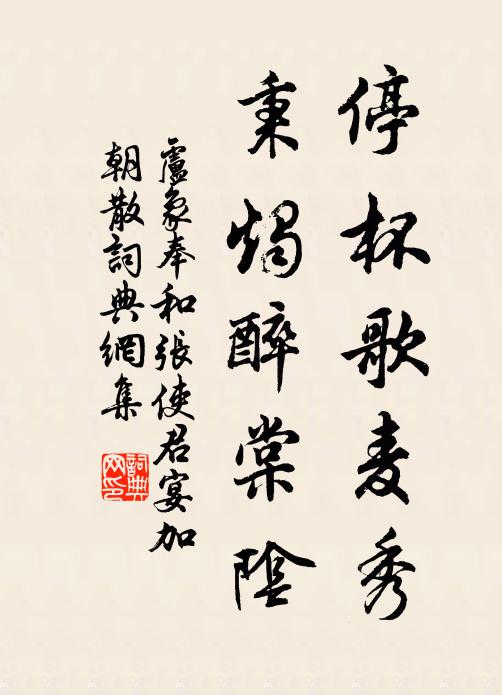 停杯歌麦秀
秉燭醉棠陰
盧象奉和張使君宴加
朝散詞典網集
詞典网印